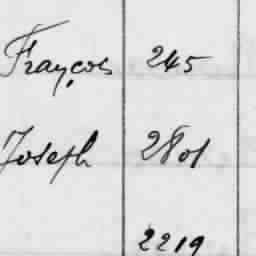 Françоis 245
Joseph 2801
2219